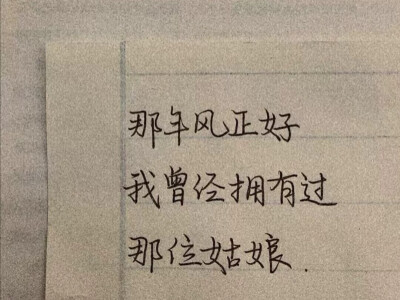 那年风正好
我曾经拥有过
那位姑娘.